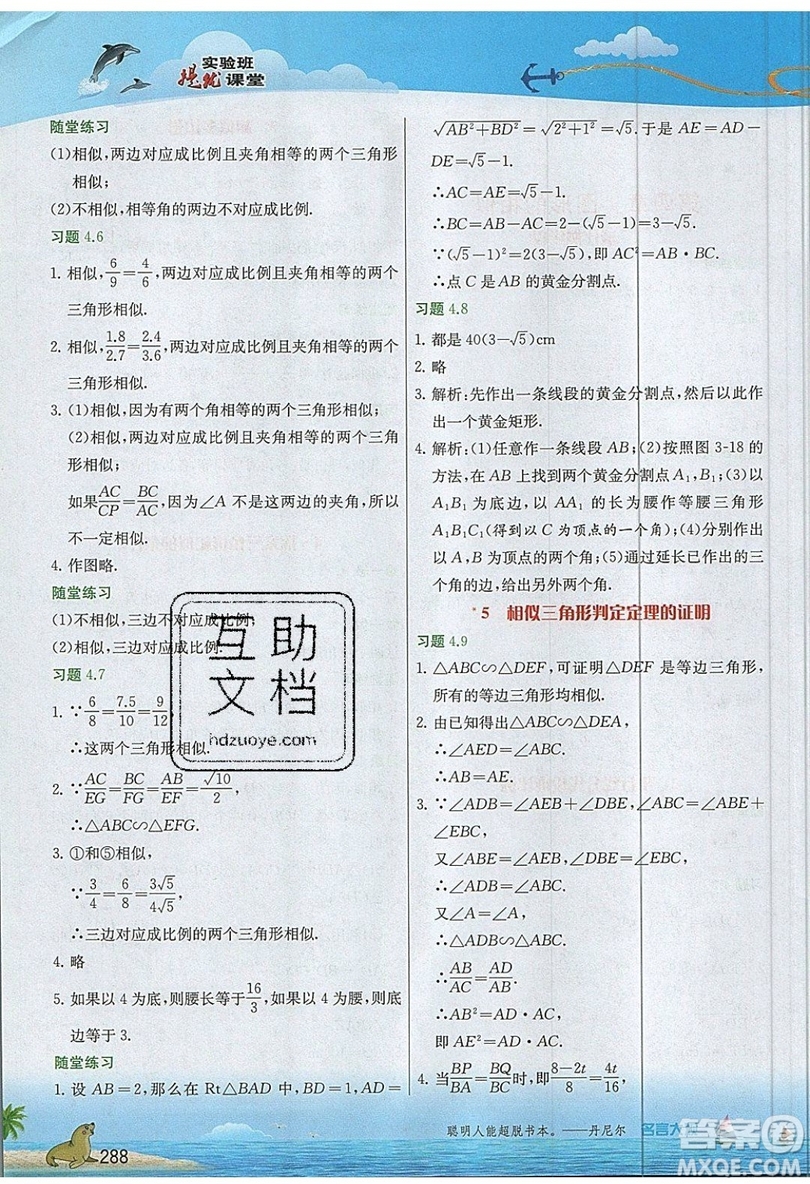 实验班
提优课堂
随堂练习
(1)相似,两边对应成比例且夹角相等的两个三角形
相似;
(2)不相似,相等角的两边不对应成比例.
习题 4.6
1. 相似,6/9=4/6,两边对应成比例且夹角相等的两个
三角形相似.
2. 相似,1.8/2.7=2.4/3.6,两边对应成比例且夹角相等的两个
三角形相似.
3. (1)相似,因为有两个角相等的两个三角形相似;
(2)相似,两边对应成比例且夹角相等的两个三角
形相似;
如果AC/CP=BC/AC,因为∠A 不是这两边的夹角,所以
不一定相似.
4. 作图略.
随堂练习
(1)不相似,三边不对应成比例;
(2)相似,三边对应成比例.
习题 4.7
1. ∵6/8=7.5/10=9/12,
∴这两个三角形相似.
2. ∵AC/EG=BC/FG=AB/EF=√10/2,
∴△ABC∽△EFG.
3. ①和⑤相似,
∵3/4=6/8=3√5/4√5,
∴三边对应成比例的两个三角形相似.
4. 略
5. 如果以 4 为底,则腰长等于16/3,如果以 4 为腰,则底
边等于 3.
随堂练习
1. 设 AB=2,那么在 Rt△BAD 中,BD=1,AD=
√AB²+BD²=√2²+1²=√5. 于是 AE=AD-
DE=√5-1.
∴AC=AE=√5-1.
∴BC=AB-AC=2-(√5-1)=3-√5.
∵(√5-1)²=2(3-√5),即 AC²=AB·BC.
∴点 C 是 AB 的黄金分割点.
习题 4.8
1. 都是 40(3-√5)cm
2. 略
3. 解析:先作出一条线段的黄金分割点,然后以此作
出一个黄金矩形.
4. 解析:(1)任意作一条线段 AB;(2)按照图 3-18 的
方法,在 AB 上找到两个黄金分割点 A₁,B₁;(3)以
A₁B₁ 为底边,以 AA₁ 的长为腰作等腰三角形
A₁B₁C(得到以 C 为顶点的一个角);(4)分别作出
以 A,B 为顶点的两个角;(5)通过延长已作出的三
个角的边,给出另外两个角.
*5 相似三角形判定定理的证明
习题 4.9
1. △ABC∽△DEF,可证明△DEF 是等边三角形,
所有的等边三角形均相似.
2. 由已知得出△ABC∽△DEA,
∴∠AED=∠ABC.
∴AB=AE.
3. ∵∠ADB=∠AEB+∠DBE,∠ABC=∠ABE+
∠EBC,
又∠ABE=∠AEB,∠DBE=∠EBC.
∴∠ADB=∠ABC.
又∠A=∠A,
∴△ADB∽△ABC.
∴AB/AC=AD/AB.
∴AB²=AD·AC,
即 AE²=AD·AC.
4. 当BP/BA=BQ/BC时,即8-2t/8=4t/16,
互助
文档
hdzuoye.com
288
聪明人能超脱书本。——丹尼尔
名言大
答案圈
MXQE.COM